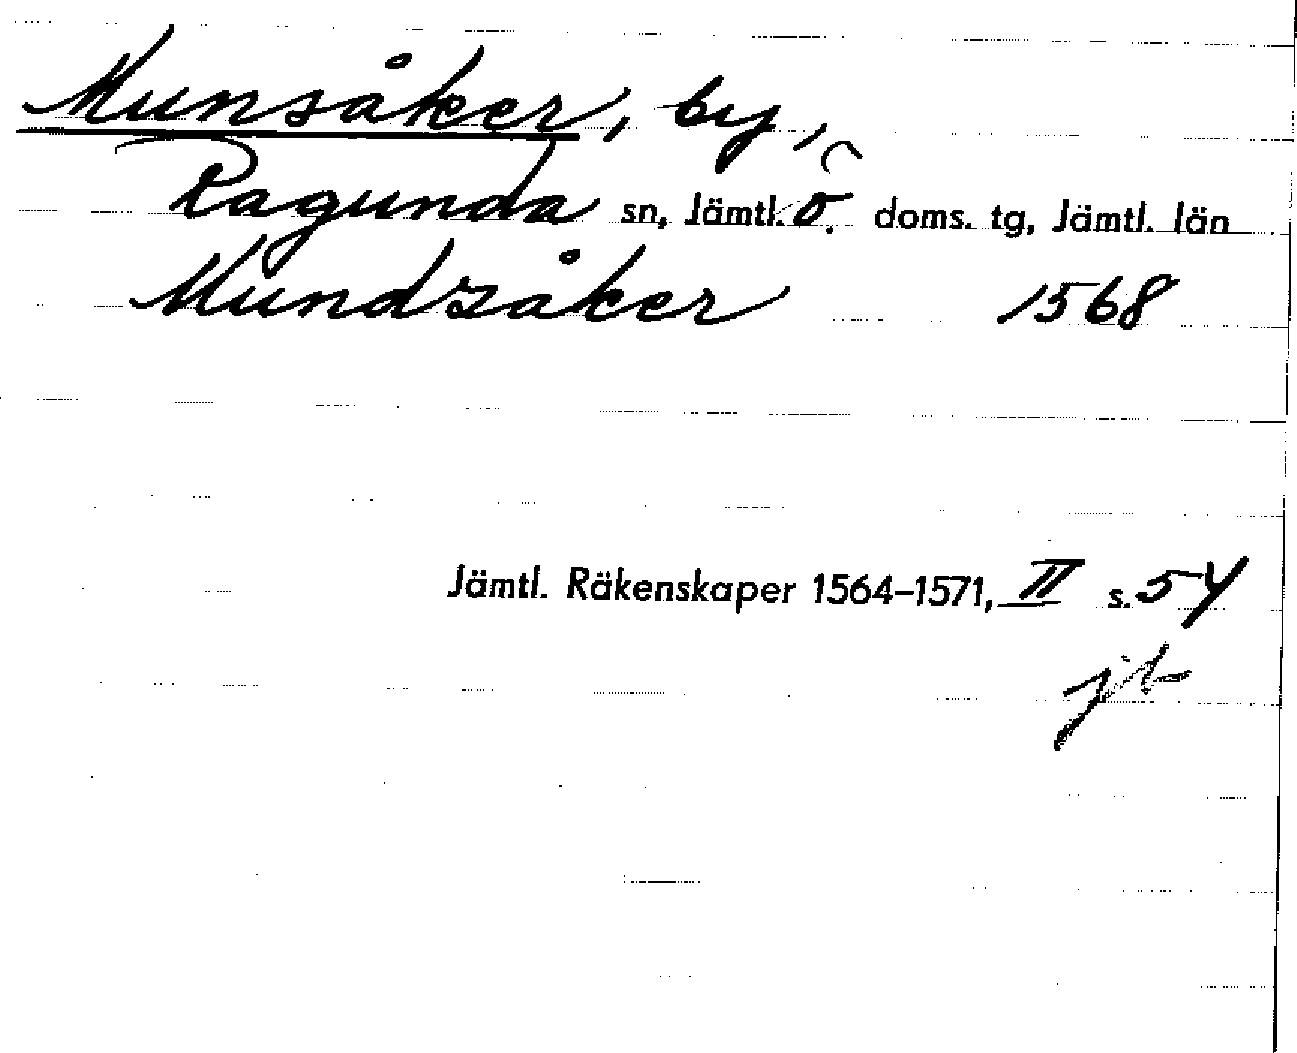 Munsåker, by,
Ragunda sn, Jämtl. ö. doms. tg, Jämtl. län
Mundzåker 1568
Jämtl. Räkenskaper 1564–1571, II s. 54
jb